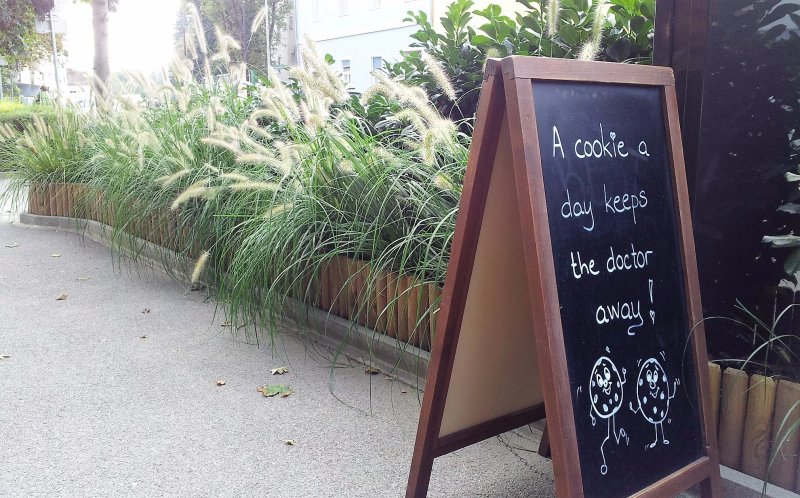 A cookie a
day keeps
the doctor
away!